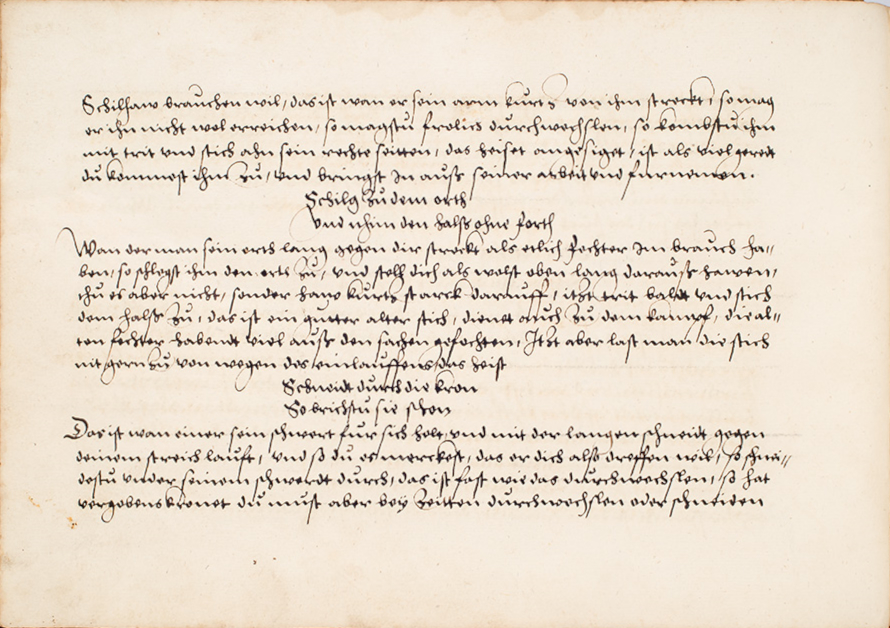 Schilhaw brauchen wil, das ist wan er sein arm kurtz von ihm streckt, so mag
er ihn nicht wol erreichen, so magstu frolich durchwechslen, so kombstu ihm
mit trit und stich ahn sein rechte seitten, das heiset angesiget, ist als viel geredt
du kommest ihm zu, und bringst in ausz seiner arbeit und furnemen.
Schilg zu dem orth
und nhim den halsz ohne forth
Wan der man sein orth lang gegen dir streckt als etlich fechter im brauch ha-
ben, so schlegst ihm den orth zu, und stell dich als wolst oben lang darausz hawen,
thu es aber nicht, sonder haw kurtz starck darauff, itzt trit baldt und stich
dem halsz zu, das ist ein gutter alter stich, dienet auch zu dem kampf, die al-
ten fechter habendt viel ausz den sachen gefochten, Itzt aber last man die stich
nit gern zu von wegen des einlauffens, das heist
Schneidt durch die kron
So brichstu sie schon
Das ist wan einer sein schwert fur sich helt, und mit der langen schneidt gegen
deinem streich laufft, und so du es merckest, das er dich also dreffen wil, so schnei-
destu under seinem schwerdt durch, das ist fast wie das durchwechslen, so hat
vergebens kronet du must aber bey zeitten durchwechslen oder schneiden